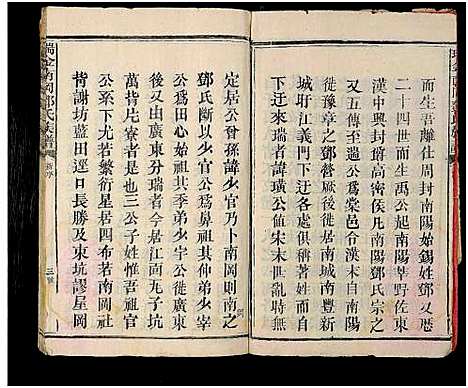 而生吾離仕周封南陽始錫姓鄧又歷
二十四世而生禹公起南陽莘野佐東
漢中興封爵高密王凡南陽鄧氏宗之
又五傳至遐公爲棠邑令漢末自南陽
徙豫章之鄧嚴厥後徙居南城南豐新
城旴江義門下迁各處俱有譜可考其
下迂來瑞者諱璜公值宋末世亂時無
定居公曾孫諱少官乃卜南岡則南之
鄧氏斷以少官公爲鼻祖其仲弟少宰
公爲田心始祖其季弟少宇公徙廣東
後又由廣東分瑞者今居江面九子坑
萬背片寮者是也三公子姓惟吾官
公系下尤若繁衍星居四布若南岡社
背謝坊藍田逕口長勝及東坑謬屋岡
瑞金南岡鄧氏族譜
新序
三